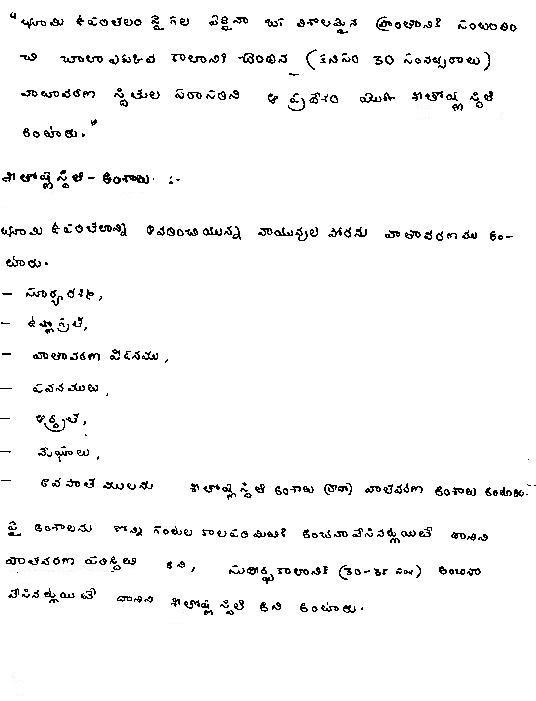 "భూమి ఉపరితలం పై గల ఏదైనా ఒక విశాలమైన ప్రాంతానికి సంబంధిం
చి చాలా ఎక్కువ కాలానికి చెందిన (కనీసం 30 సంవత్సరాలు)
వాతావరణ స్థితుల సరాసరిని ఆ ప్రదేశం యొక్క శీతోష్ణ స్థితి
అంటారు."
శీతోష్ణస్థితి - అంశాలు :-
భూమి ఉపరితలాన్ని ఆవరించియున్న వాయువుల పొరను వాతావరణము అం-
టారు.
- సూర్యరశ్మి,
- ఉష్ణోగ్రత,
- వాతావరణ పీడనము,
- పవనములు,
- ఆర్ద్రత,
- మేఘాలు,
- అవపాతములను శీతోష్ణస్థితి అంశాలు (లేదా) వాతావరణ అంశాలు అంటారు.
పై అంశాలను కొన్ని గంటల కాలపరిమితికి అంచనావేసినట్లయితే దానిని
వాతావరణ పరిస్థితి అని, సుదీర్ఘకాలానికి (30-35 సం॥) అంచనా
వేసినట్లయితే దానిని శీతోష్ణ స్థితి అని అంటారు.